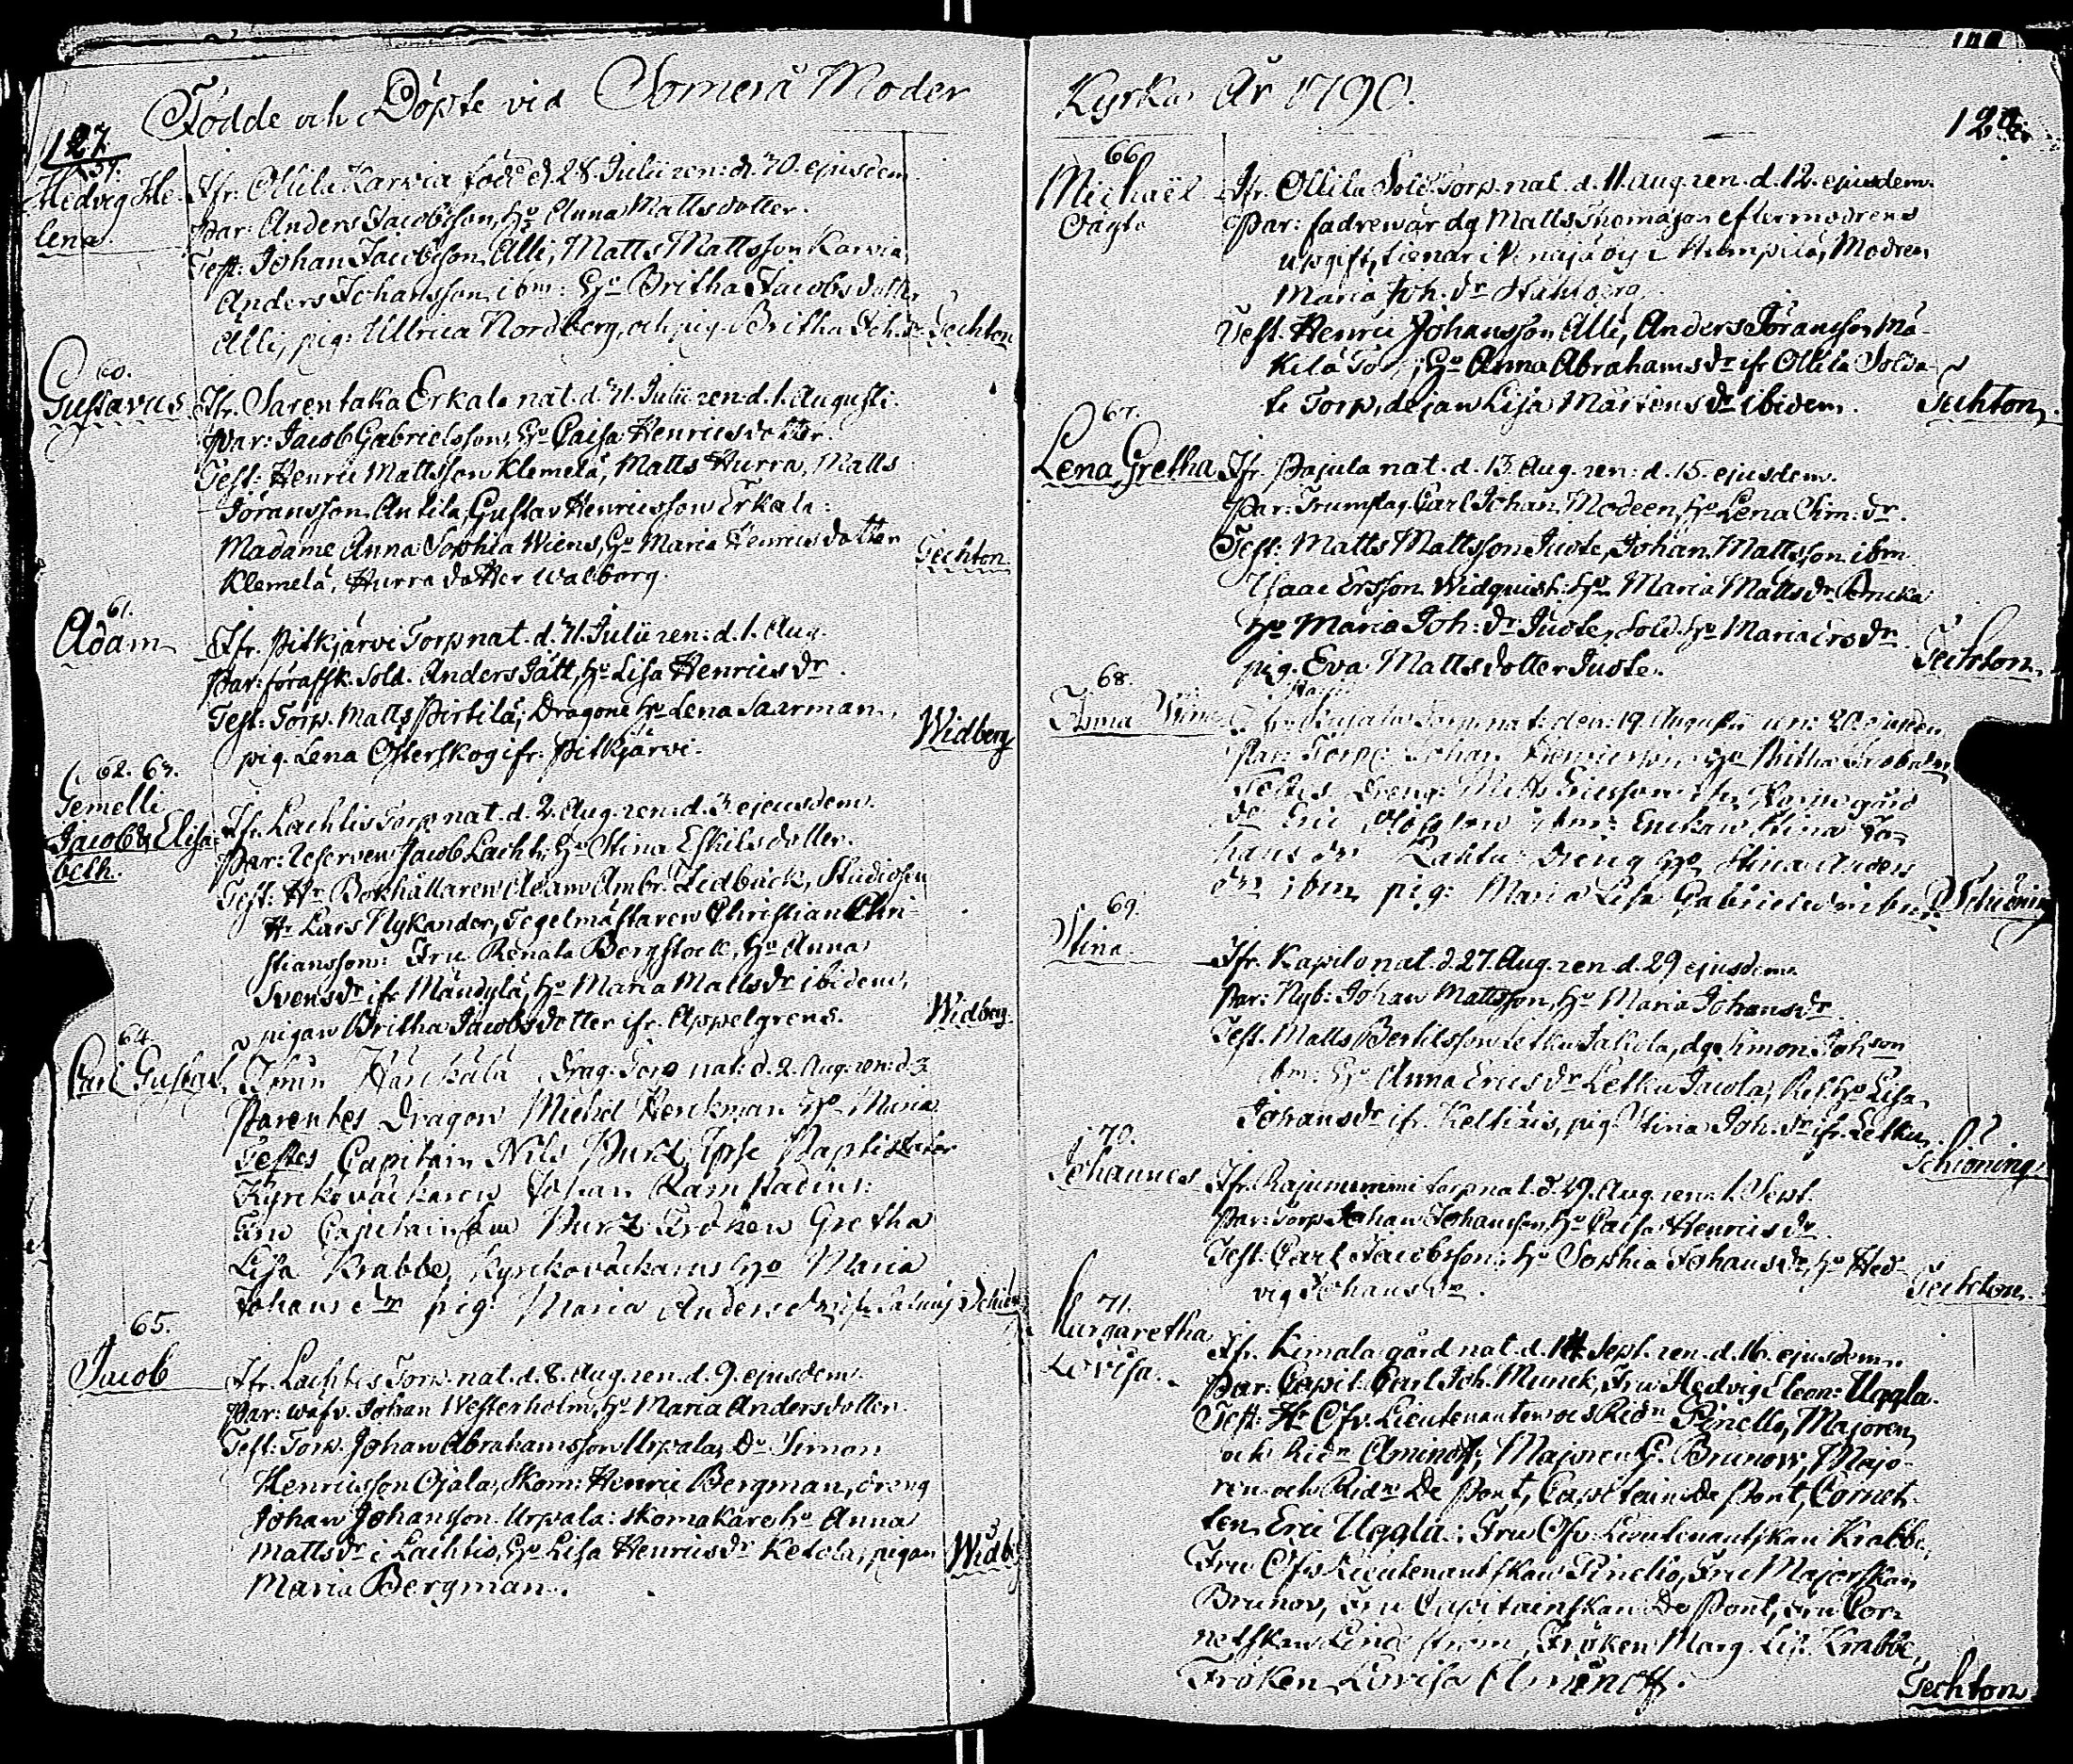 Födde och Döpte vid Somerå Moder
127
59.
Hedvig He-
lena.
Ifr. Ollila Karvia född d. 28 Julii ren: d. 30. ejusdem
Par: Anders Jacobsson, Ho Anna Mattsdotter.
Test: Johan Jacobsson Alli, Matts Mattsson Karvia,
Anders Johansson ibm: Ho Britha Jacobsdotter
Alli, pig: Ullrica Nordberg, och pig. Britha Joh. dr
Techton
60.
Gustavus
Ifr. Sarentaka Erkala nat. d. 31. Julii ren d. 1. Augusti.
Par: Jacob Gabrielsson, Ho Caisa Henricsdotter.
Test: Henric Mattsson Klemelä, Matts Hurra, Matts
Jöransson Antila, Gustav Henricsson Erkala:
Madame Anna Sophia Wiens, Ho Maria Henricsdotter
Klemelä, Hurra dotter Walborg.
Techton.
61.
Adam
Ifr. Pitkjärvi Torp nat. d. 31. Julii ren: d. 1. Aug.
Par: förafsk. Sold. Anders Jätt, Ho Lisa Henricsdr.
Test: Torp. Matts Pirtilä, Dragone Ho Lena Saarman,
pig. Lena Österskog ifr. Pitkjärvi.
Widberg
62. 63.
Gemelli
Jacob & Elisa-
beth.
Ifr. Lachtis Torp nat. d. 2. Aug. ren: d. 3 ejusdem.
Par: Reserven Jacob Lacht, Ho Stina Eskilsdotter.
Test: Hr Bokhållaren Adam Ambr. Tidbäck, Studiosen
Hr Lars Nykander, Tegelmästaren Christian Chri-
stiansson: Fru Renata Bergstock, Ho Anna
Svensdr ifr Mändylä, Ho Maria Mattsdr ibidem,
pigan Britha Jacobsdotter ifr. Appelgrens.
Widberg.
64.
Carl Gustaf
Ifrån Härikälä Drag. Torp nat: d. 2. Aug: ren: d. 3
Parentes Dragon Michel Henkman Ho Maria
Testes Capitain Nils Burtz, Ipse Baptisator
Kyrckoväckaren Johan Ramstadius:
Fru Capitainskan Burtz Fröken Gretha
Lisa Krabbe, Kyrckoväckarns Ho Maria
Johansdr pig: Maria Andersdr
65.
Jacob
Ifr. Lachtis Torp. nat. d. 8. Aug. ren. d. 9. ejusdem.
Par: Wafv. Johan Westerholm, Ho Maria Andersdotter.
Test: Torp. Johan Abrahamsson Urpala, Do Simon
Henricsson Ojala, Skom: Henric Bergman, dreng
Johan Johansson Urpala: skomakare Ho Anna
Mattsdr i Lachtis, Ho Lisa Henricsdr Ketola, pigan
Maria Bergman.
Widb
Kyrka År 1790.
66
Michaël
Oägta
Ifr. Ollila Sold. Torp. nat. d. 11. Aug. ren. d. 12. ejusdem.
Par: fadren är dg Matts Thomasson efter modrens
uppgift, tienar i by i Humpila, Modren
Maria Joh. dr
Test. Henric Johansson Alli, Anders Jöransson Mä-
kilä Ho Anna Abrahamsdr ifr Ollila Solda-
te Torp, dejan Lisa Mårtensdr ibidem.
Techton.
67.
Lena Gretha
Ifr. Pajula nat. d. 13. Aug. ren: d. 15. ejusdem.
Par: Trumslag. Carl Johan Modeen, Ho Lena Sim: dr.
Test: Matts Mattsson Juote, Johan Mattsson ibm
Isaac Ersson Widquist: Ho Maria Mattsdr
Ho Maria Joh: dr Juote, Sold. Ho Maria Ersdr
pig. Eva Mattsdotter Juote.
Techton.
68.
Anna
Torp nat: den: 19 Augusti ren: 20. ejusdem
Par: Torp: Johan Henricsson Ho Britha
Testes Dreng: Matts Ericsson ifr
do Eric ibm: Enckan Stina Jo-
hansdr dreng Ho Stina Anders
dr ibm pig: Maria Lisa Gabrielsdr ibm
Schiöning
69.
Stina
Ifr. Kapilo nat. d. 27. Aug. ren. d. 29 ejusdem.
Par: Nyb: Johan Mattsson, Ho Maria Johansdr.
Test. Matts Bertilsson Letku Jakula, dg Simon Johson
ibm: Ho Anna Ericsdr Letku Jacola, Ho Lisa
Johansdr ifr. pig. Stina Joh. dr ifr. Letku.
Schiöning.
70.
Johannes
Ifr. torp nat. d. 29. Aug. ren: 1. Sept.
Par: Torp Johan Johansson, Ho Caisa Henricsdr.
Test: Carl Jacobsson: Ho Sophia Johansdr, Ho Hed-
vig Johansdr.
Techton.
71.
Margaretha
Lovisa.
Ifr. Kimala gård nat. d. 14 Sept. ren. d. 16. ejusdem.
Par: Capit. Carl Joh. Munck, Fru Hedvig Eleon: Uggla.
Test: Hr Öfv. Lieutenanten och Ridr Pinello, Majoren
och Ridr Aminoff, Majoren G. Brunow, Majo-
ren och Ridr De Pont, Capitain de Pont, Cornet-
ten Eric Uggla: Fru Öfv. Lieutenantskan Krabbe,
Fru Öfv. Lieutenantskan Pinello, Fru Majorskan
Brunov, Fru Capitainskan De Pont, Fru Cor-
netskan Lindström, Fröken Marg. Lis. Krabbe,
Fröken Lovisa Aminoff.
Techton